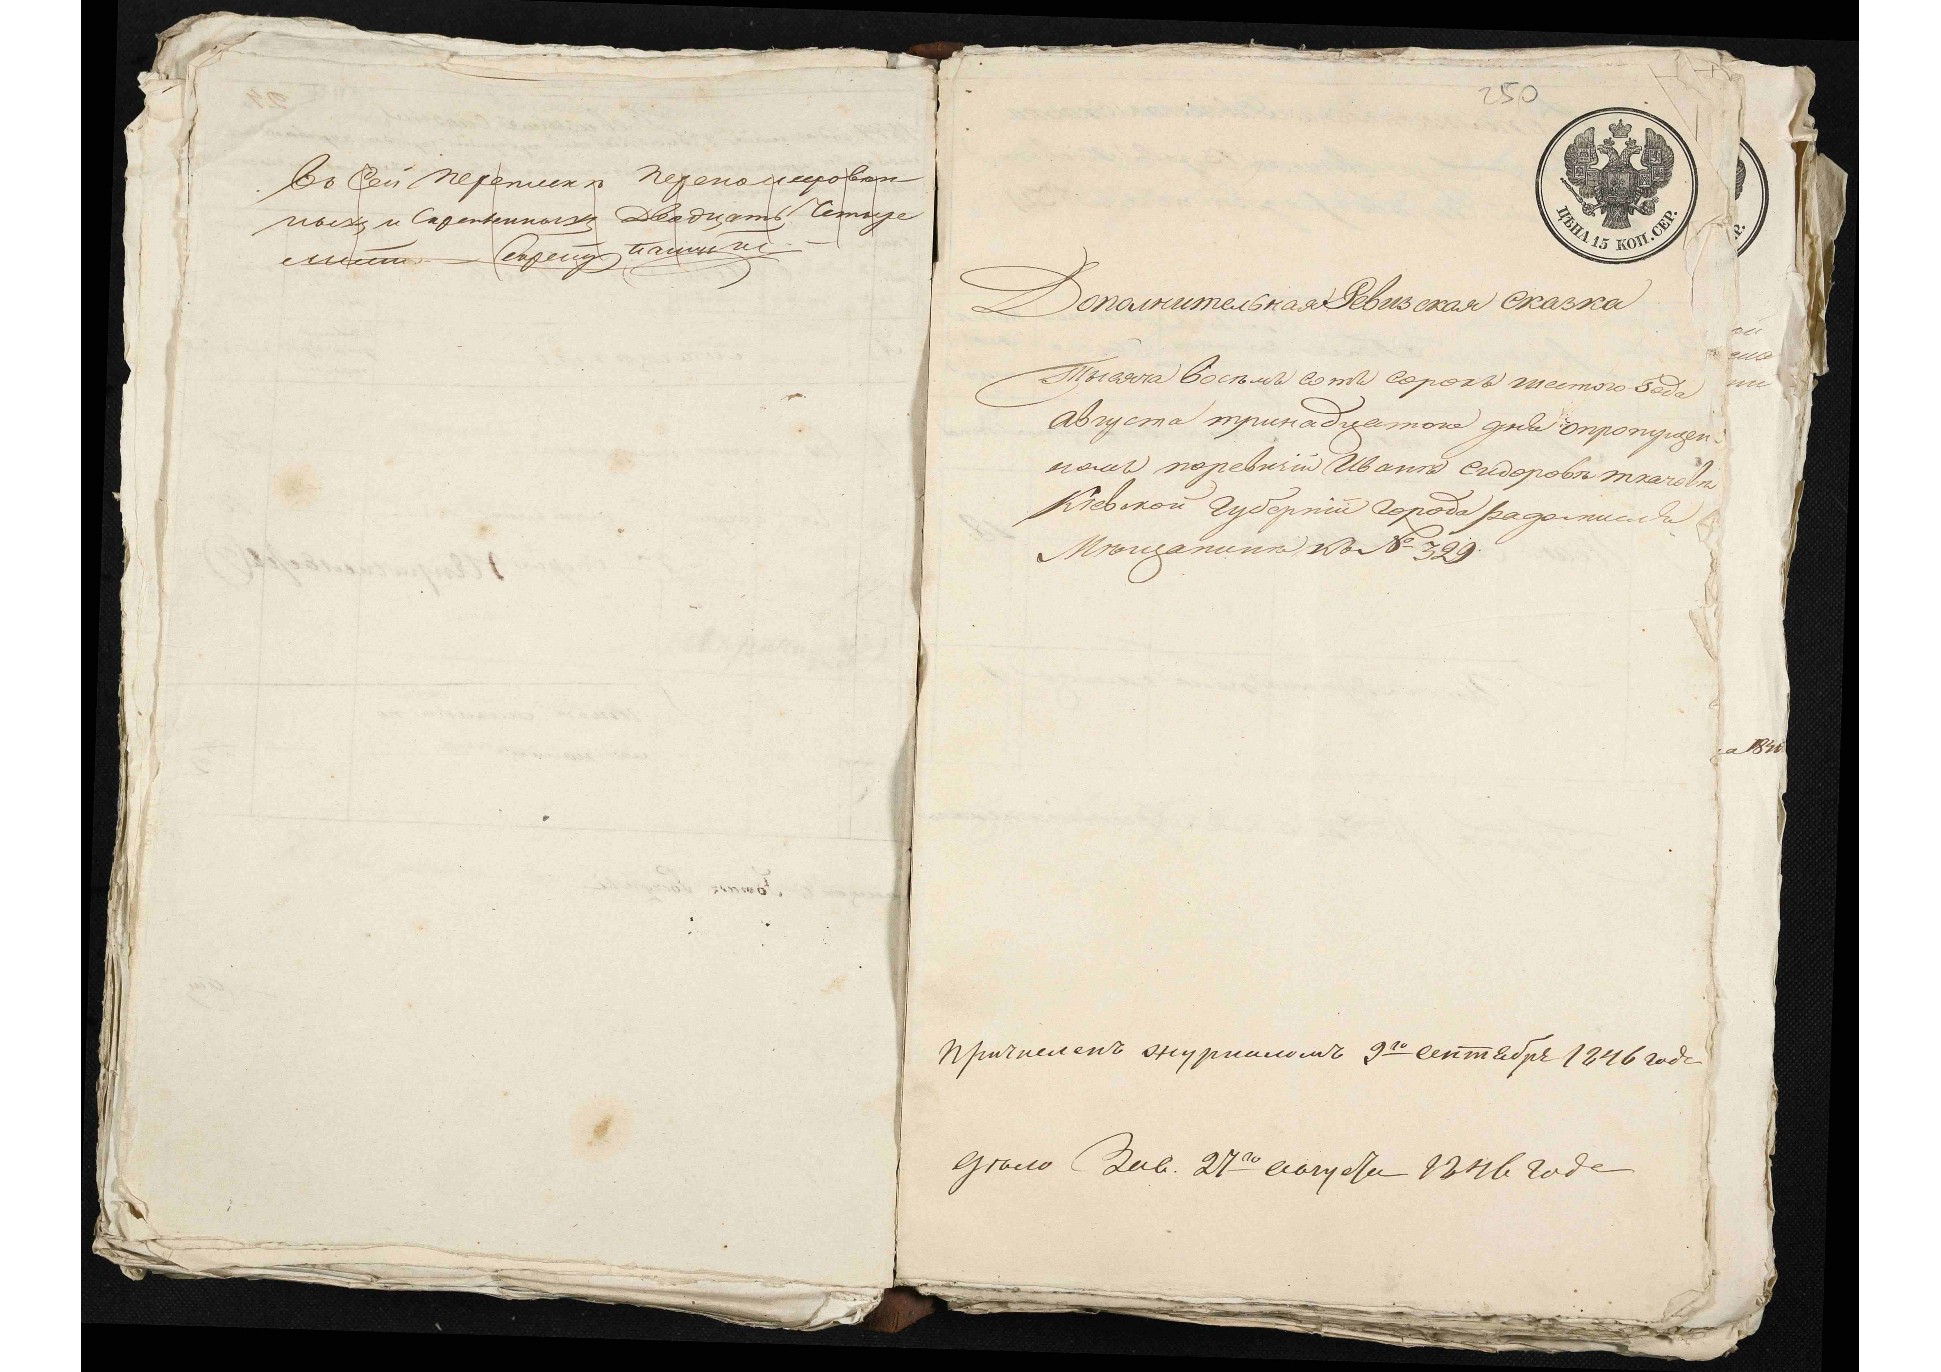 Въ Сей Переписи Перенумерован
ныхъ и Скрепленныхъ Двадцать Четыре
листа
250
ЦѢНА 15 КОП. СЕР.
Дополнительная Ревизская сказка
Тысяча восемь сотъ сорокъ шестого года
августа тринадцатого дня опропущен
номъ поревизіи Иванѣ Сидоровѣ ткачовѣ
Кіевской Губерніи Города Радомисля
Мѣщанинѣ къ № 329
Причисленъ журналомъ 9го сентября 1846 года
дѣло Зав. 27го августа 1846 года